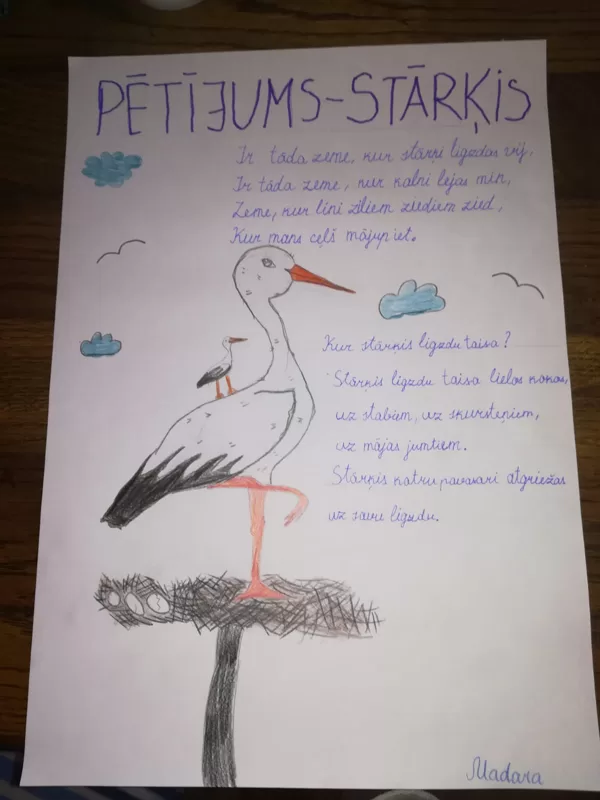 PĒTĪJUMS-STĀRĶIS
Ir tāda zeme, kur stārķi ligzdas vij,
Ir tāda zeme, kur kalni lejas min,
Zeme, kur lini ziliem ziediem zied,
Kur mans ceļš mājup iet.
Kur stārķis ligzdu taisa?
Stārķis ligzdu taisa lielos kokos,
uz stabiem, uz skursteņiem,
uz mājas jumtiem.
Stārķis katru pavasari atgriežas
uz savu ligzdu.
Madara